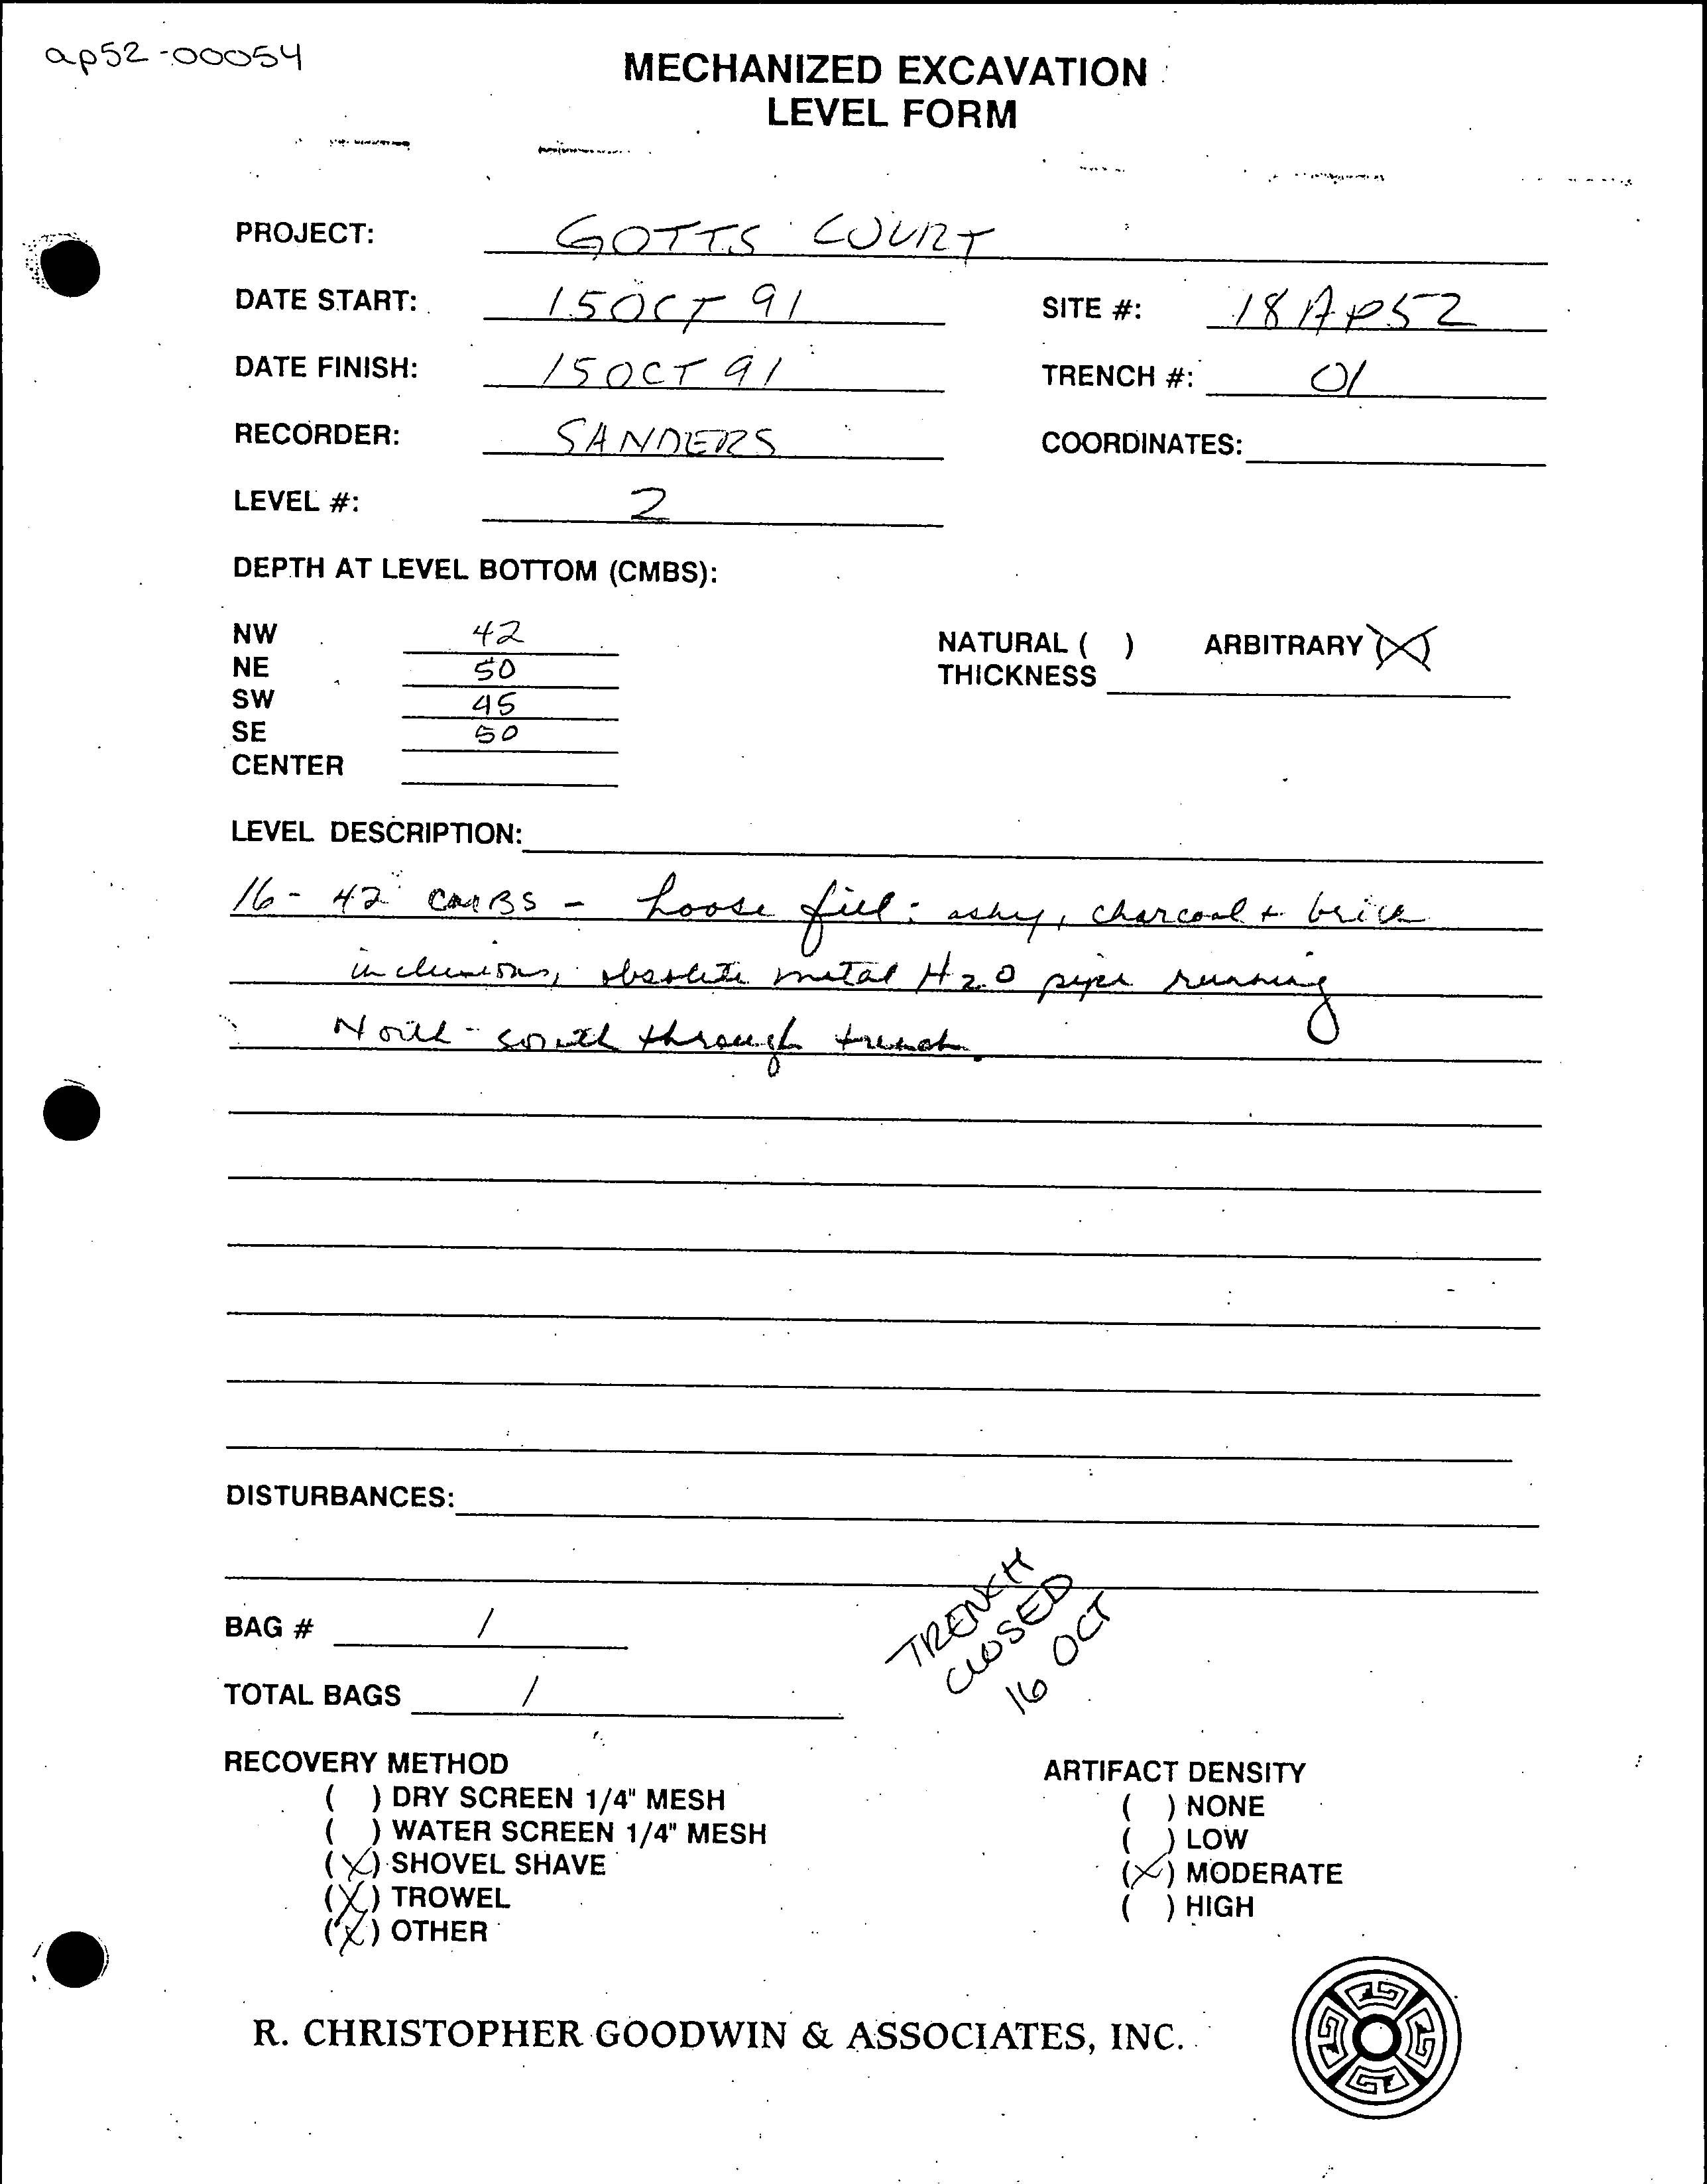 ap52-00054
MECHANIZED EXCAVATION
LEVEL FORM
PROJECT: GOTTS COURT
DATE START: 15 OCT 91 SITE #: 18AP52
DATE FINISH: 15 OCT 91 TRENCH #: 01
RECORDER: SANDERS COORDINATES:
LEVEL #: 2
DEPTH AT LEVEL BOTTOM (CMBS):
NW 42
NE 50 NATURAL ( ) ARBITRARY (X)
SW 45 THICKNESS
SE 50
CENTER
LEVEL DESCRIPTION:
16 - 42 cmBS - Loose fill: ashy, charcoal + brick
inclusions, obsolete metal H2O pipe running
North-south through trench.
DISTURBANCES:
BAG # 1
TOTAL BAGS 1
TRENCH
CLOSED
16 OCT
RECOVERY METHOD
( ) DRY SCREEN 1/4" MESH
( ) WATER SCREEN 1/4" MESH
(X) SHOVEL SHAVE
(X) TROWEL
(X) OTHER
ARTIFACT DENSITY
( ) NONE
( ) LOW
(X) MODERATE
( ) HIGH
R. CHRISTOPHER GOODWIN & ASSOCIATES, INC.